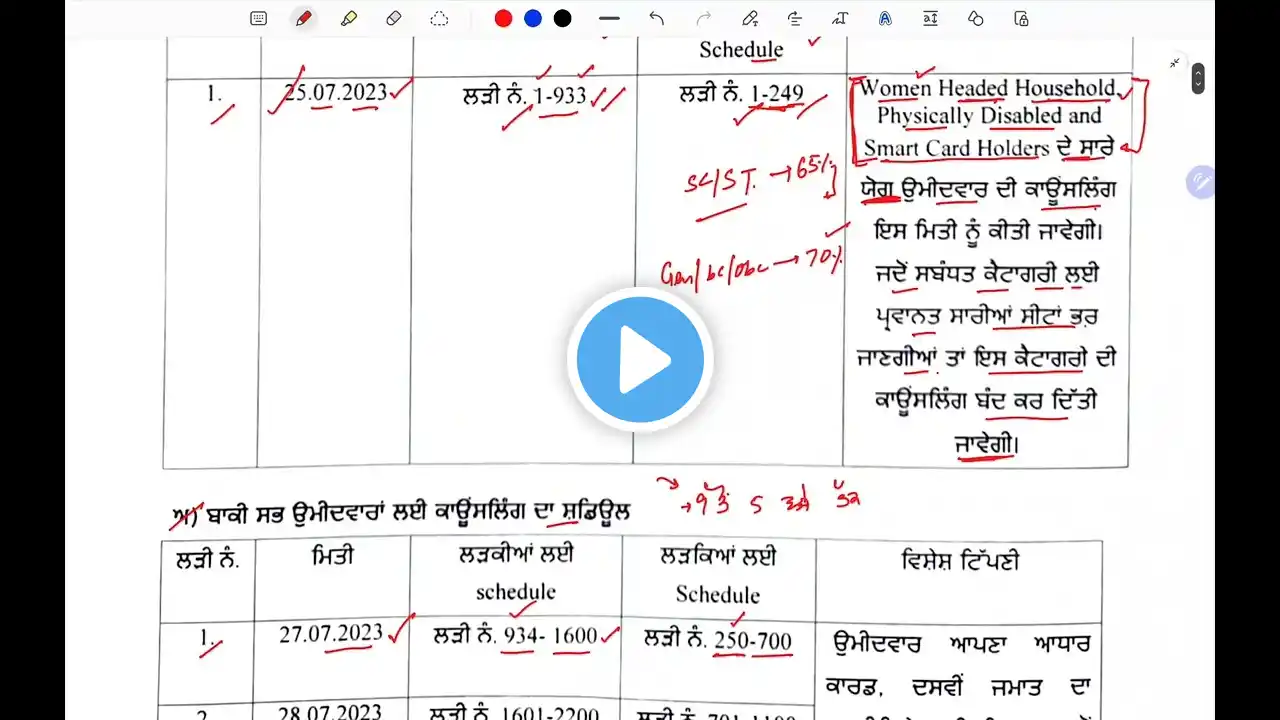 Schedule
1.
25.07.2023
ਲੜੀ ਨੰ. 1-933
ਲੜੀ ਨੰ. 1-249
Women Headed Household,
Physically Disabled and
Smart Card Holders ਦੇ ਸਾਰੇ
ਯੋਗ ਉਮੀਦਵਾਰ ਦੀ ਕਾਊਂਸਲਿੰਗ
ਇਸ ਮਿਤੀ ਨੂੰ ਕੀਤੀ ਜਾਵੇਗੀ।
ਜਦੋਂ ਸਬੰਧਤ ਕੈਟਾਗਰੀ ਲਈ
ਪ੍ਰਵਾਨਤ ਸਾਰੀਆਂ ਸੀਟਾਂ ਭਰ
ਜਾਣਗੀਆਂ ਤਾਂ ਇਸ ਕੈਟਾਗਰੀ ਦੀ
ਕਾਊਂਸਲਿੰਗ ਬੰਦ ਕਰ ਦਿੱਤੀ
ਜਾਵੇਗੀ।
SC/ST. → 65%
Gen/bc/obc → 70%
ਅ) ਬਾਕੀ ਸਭ ਉਮੀਦਵਾਰਾਂ ਲਈ ਕਾਊਂਸਲਿੰਗ ਦਾ ਸ਼ਡਿਊਲ
ਲੜੀ ਨੰ.
ਮਿਤੀ
ਲੜਕੀਆਂ ਲਈ
schedule
ਲੜਕਿਆਂ ਲਈ
Schedule
ਵਿਸ਼ੇਸ਼ ਟਿੱਪਣੀ
1.
27.07.2023
ਲੜੀ ਨੰ. 934- 1600
ਲੜੀ ਨੰ. 250-700
ਉਮੀਦਵਾਰ ਆਪਣਾ ਆਧਾਰ
ਕਾਰਡ, ਦਸਵੀਂ ਜਮਾਤ ਦਾ
2.
28.07.2023
ਲੜੀ ਨੰ. 1601-2200
ਲੜੀ ਨੰ. 701-1100